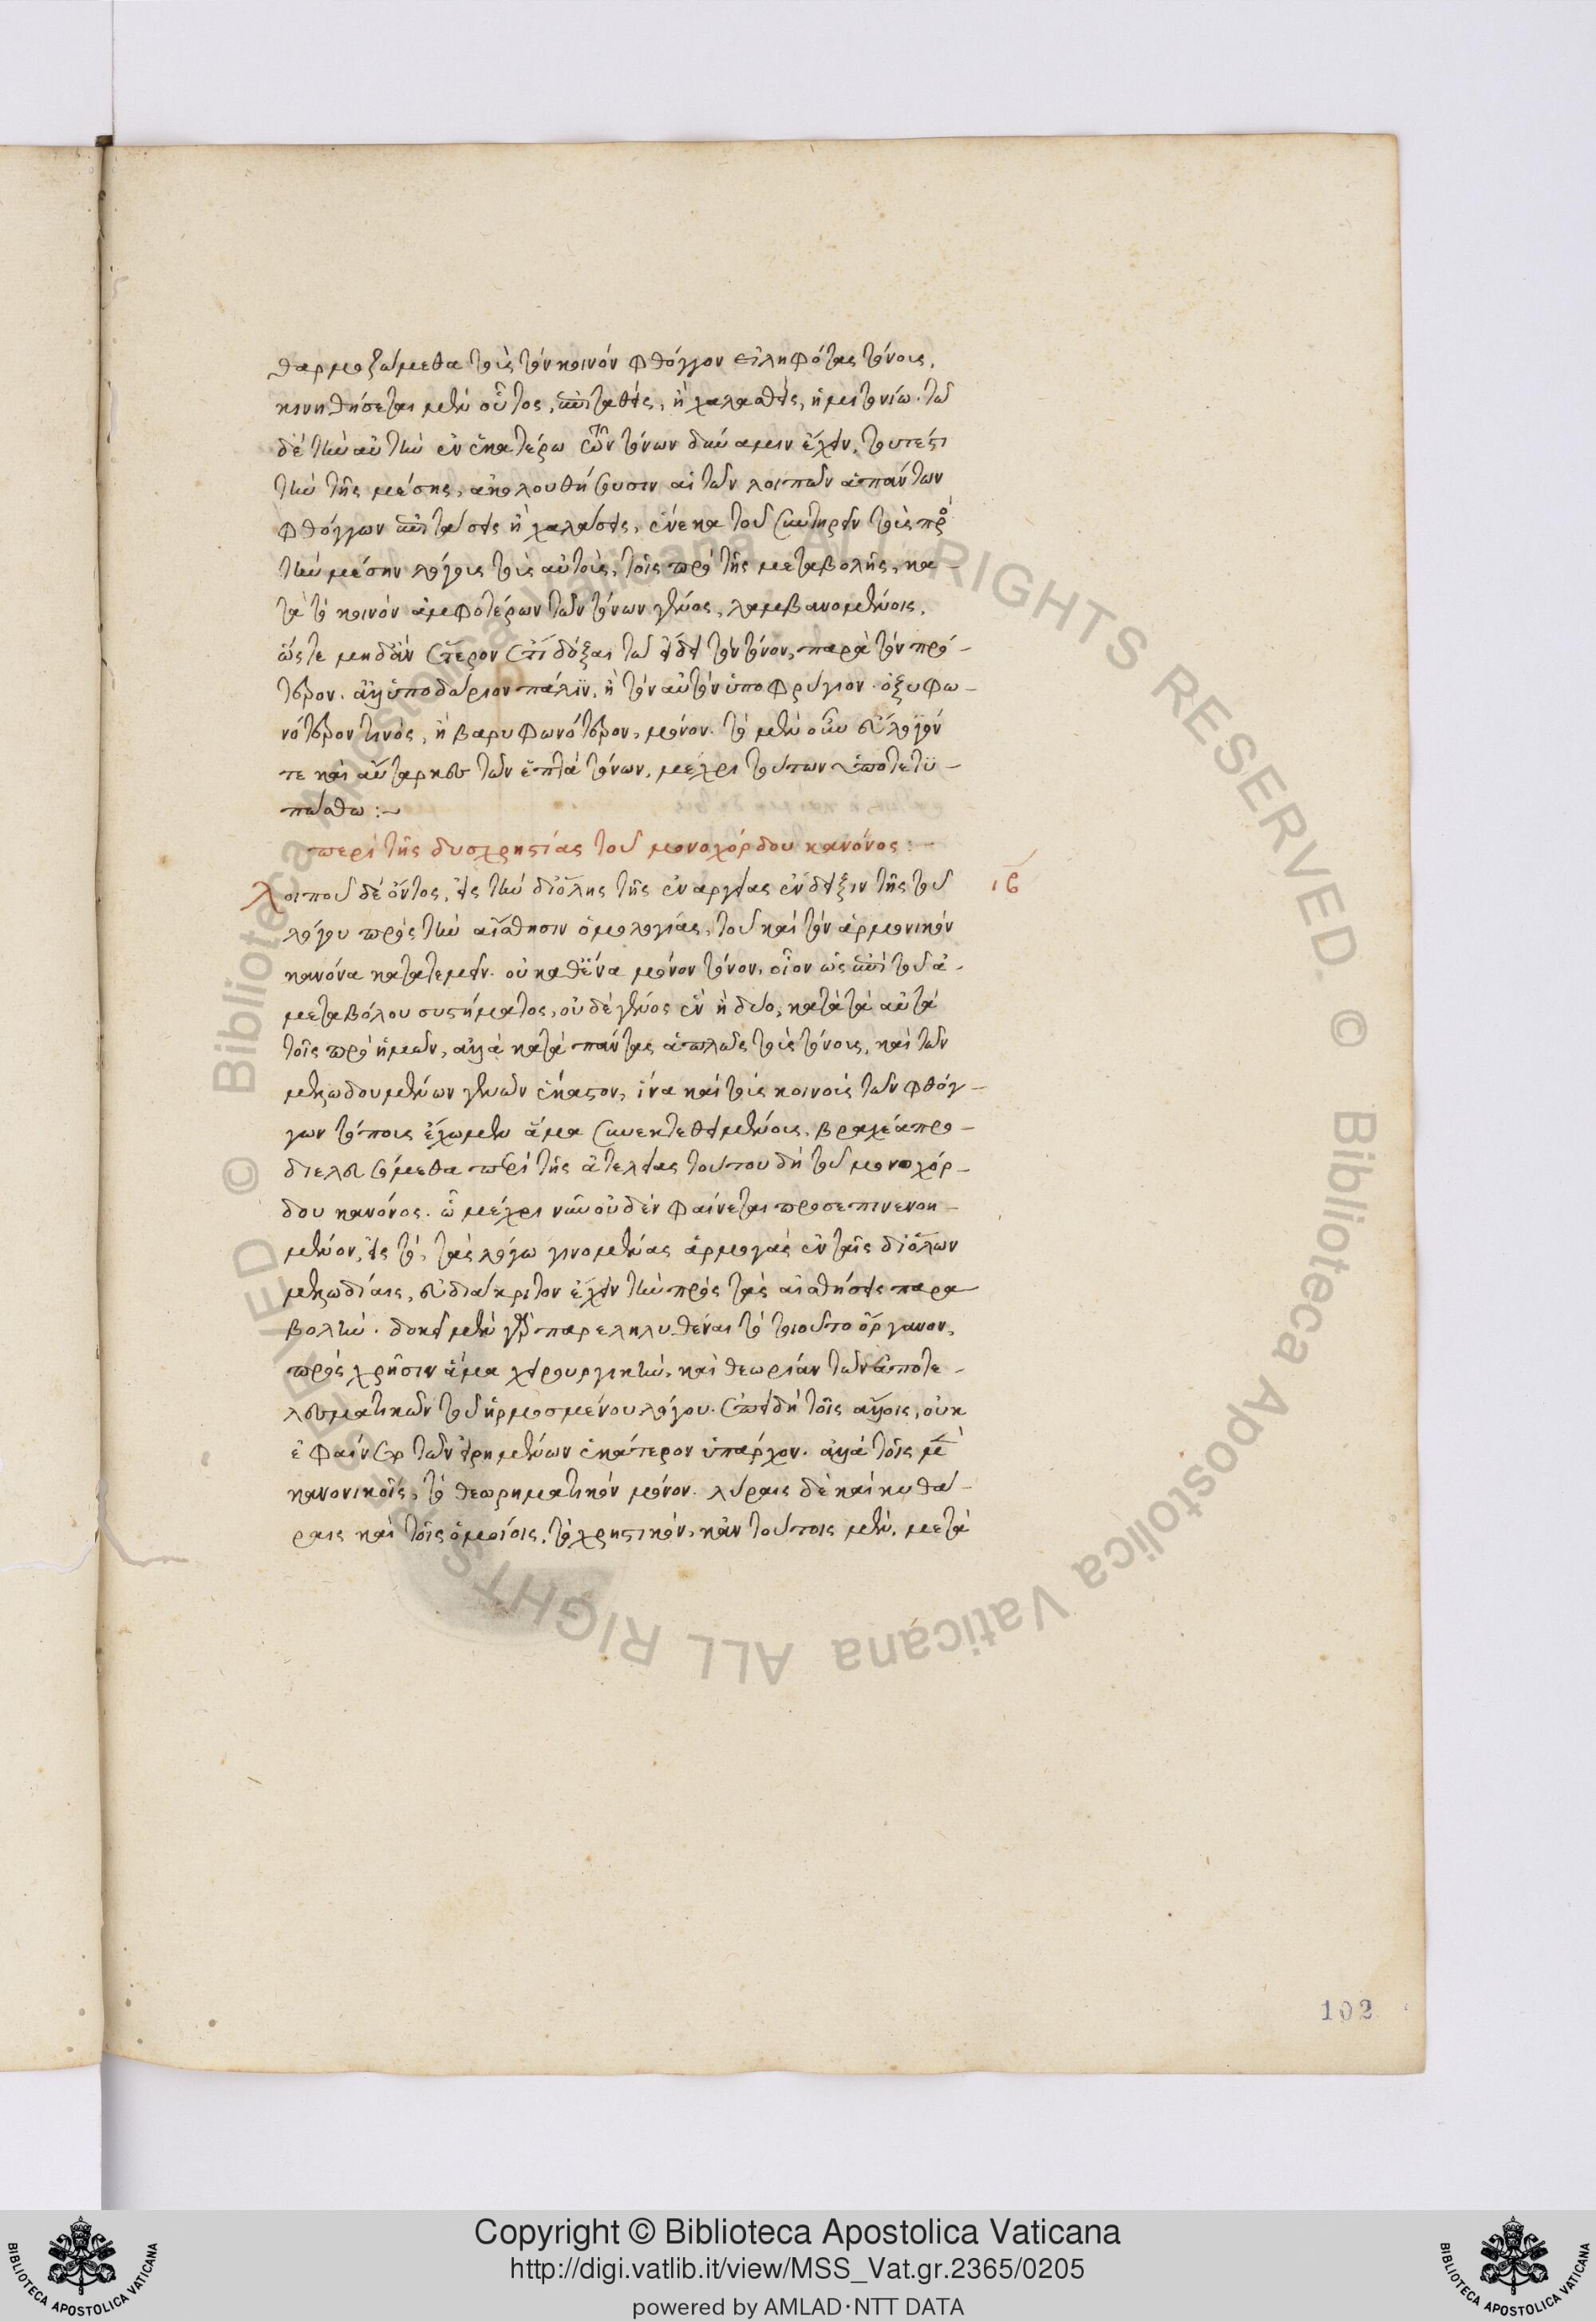 θαρμοζώμεθα τοὺς τὸν κοινὸν φθόγγον εἰληφότας τόνους,
κινηθήσεται μὲν οὗτος, ἐπιταθεὶς, ἢ χαλασθεὶς, ἡμιτονίω. τῶ
δὲ τὴν αὐτὴν ἐν ἑκατέρω τῶν τόνων δύναμιν ἔχειν, τουτέστι
τὴν τῆς μέσης, ἀκολουθήσουσιν αἱ τῶν λοιπῶν ἁπάντων
φθόγγων ἐπιτάσεις ἢ χαλάσεις, ἕνεκα τοῦ συντηρεῖν τοὺς πρὸς
τὴν μέσην λόγους τοὺς αὐτοὺς, τοῖς πρὸ τῆς μεταβολῆς, κα-
τὰ τὸ κοινὸν ἀμφοτέρων τῶν τόνων γένος, λαμβανομένοις,
ὥστε μηδὰν ἕτερον ἔτι δόξαι τῶ εἴδει τὸν τόνον, παρὰ τὸν πρό-
τερον. ἀλλ' ὑποδώριον πάλιν, ἢ τὸν αὐτὸν ὑποφρύγιον. ὀξυφω-
νότερον τινὸς, ἢ βαρυφωνότερον, μόνον. τὸ μὲν οὖν εὔλογόν
τε καὶ αὔταρκες τῶν ἑπτὰ τόνων, μέχρι τούτων ὑποτετυ-
πώσθω :~
περὶ τῆς δυσχρηστίας τοῦ μονοχόρδου κανόνος :~
λοιποῦ δὲ ὄντος, εἰς τὴν δι' ὅλης τῆς ἐναργείας ἔνδειξιν τῆς τοῦ
ιβ
λόγου πρὸς τὴν αἴσθησιν ὁμολογίας, τοῦ καὶ τὸν ἁρμονικὸν
κανόνα κατατεμεῖν. οὐ καθ' ἕνα μόνον τόνον, οἷον ὡς ἐπὶ τοῦ ἀ-
μεταβόλου συστήματος, οὐδὲ γένος ἓν ἢ δύο, κατὰ τὰ αὐτὰ
τοῖς πρὸ ἡμῶν, ἀλλὰ κατὰ πάντας ἁπλῶς τοὺς τόνους, καὶ τῶν
μελωδουμένων γενῶν ἕκαστον, ἵνα καὶ τοὺς κοινοὺς τῶν φθόγ-
γων τόπους ἔχωμεν ἅμα συνεκτεθειμένους, βραχέα προ-
διελευσόμεθα περὶ τῆς ἀτελείας τούτου δὴ τοῦ μονοχόρ-
δου κανόνος. ὧ μέχρι νῦν οὐδὲν φαίνεται προσεπινενοη-
μένον, εἰς τὸ, τὰς λόγω γινομένας ἁρμογὰς ἐν ταῖς δι' ὅλων
μελωδίαις, εὐδιάκριτον ἔχειν τὴν πρὸς τὰς αἰσθήσεις παρα
βολήν. δοκεῖ μὲν γὰρ παρεληλυθέναι τὸ τοιοῦτο ὄργανον,
πρὸς χρῆσιν ἅμα χειρουργικὴν, καὶ θεωρίαν τῶν ἀποτε-
λεσματικῶν τοῦ ἡρμοσμένου λόγου. ἐπειδὴ τοῖς ἄλλοις, οὐκ
ἐφαίνετο τῶν εἰρημένων ἑκάτερον ὑπάρχον. ἀλλὰ τοῖς μὲν
κανονικοῖς, τὸ θεωρηματικὸν μόνον. λύραις δὲ καὶ κυθά-
ραις καὶ τοῖς ὁμοίοις, τὸ χρηστικὸν, κἀν τούτοις μὲν, μετὰ
102
Copyright © Biblioteca Apostolica Vaticana
http://digi.vatlib.it/view/MSS_Vat.gr.2365/0205
powered by AMLAD·NTT DATA